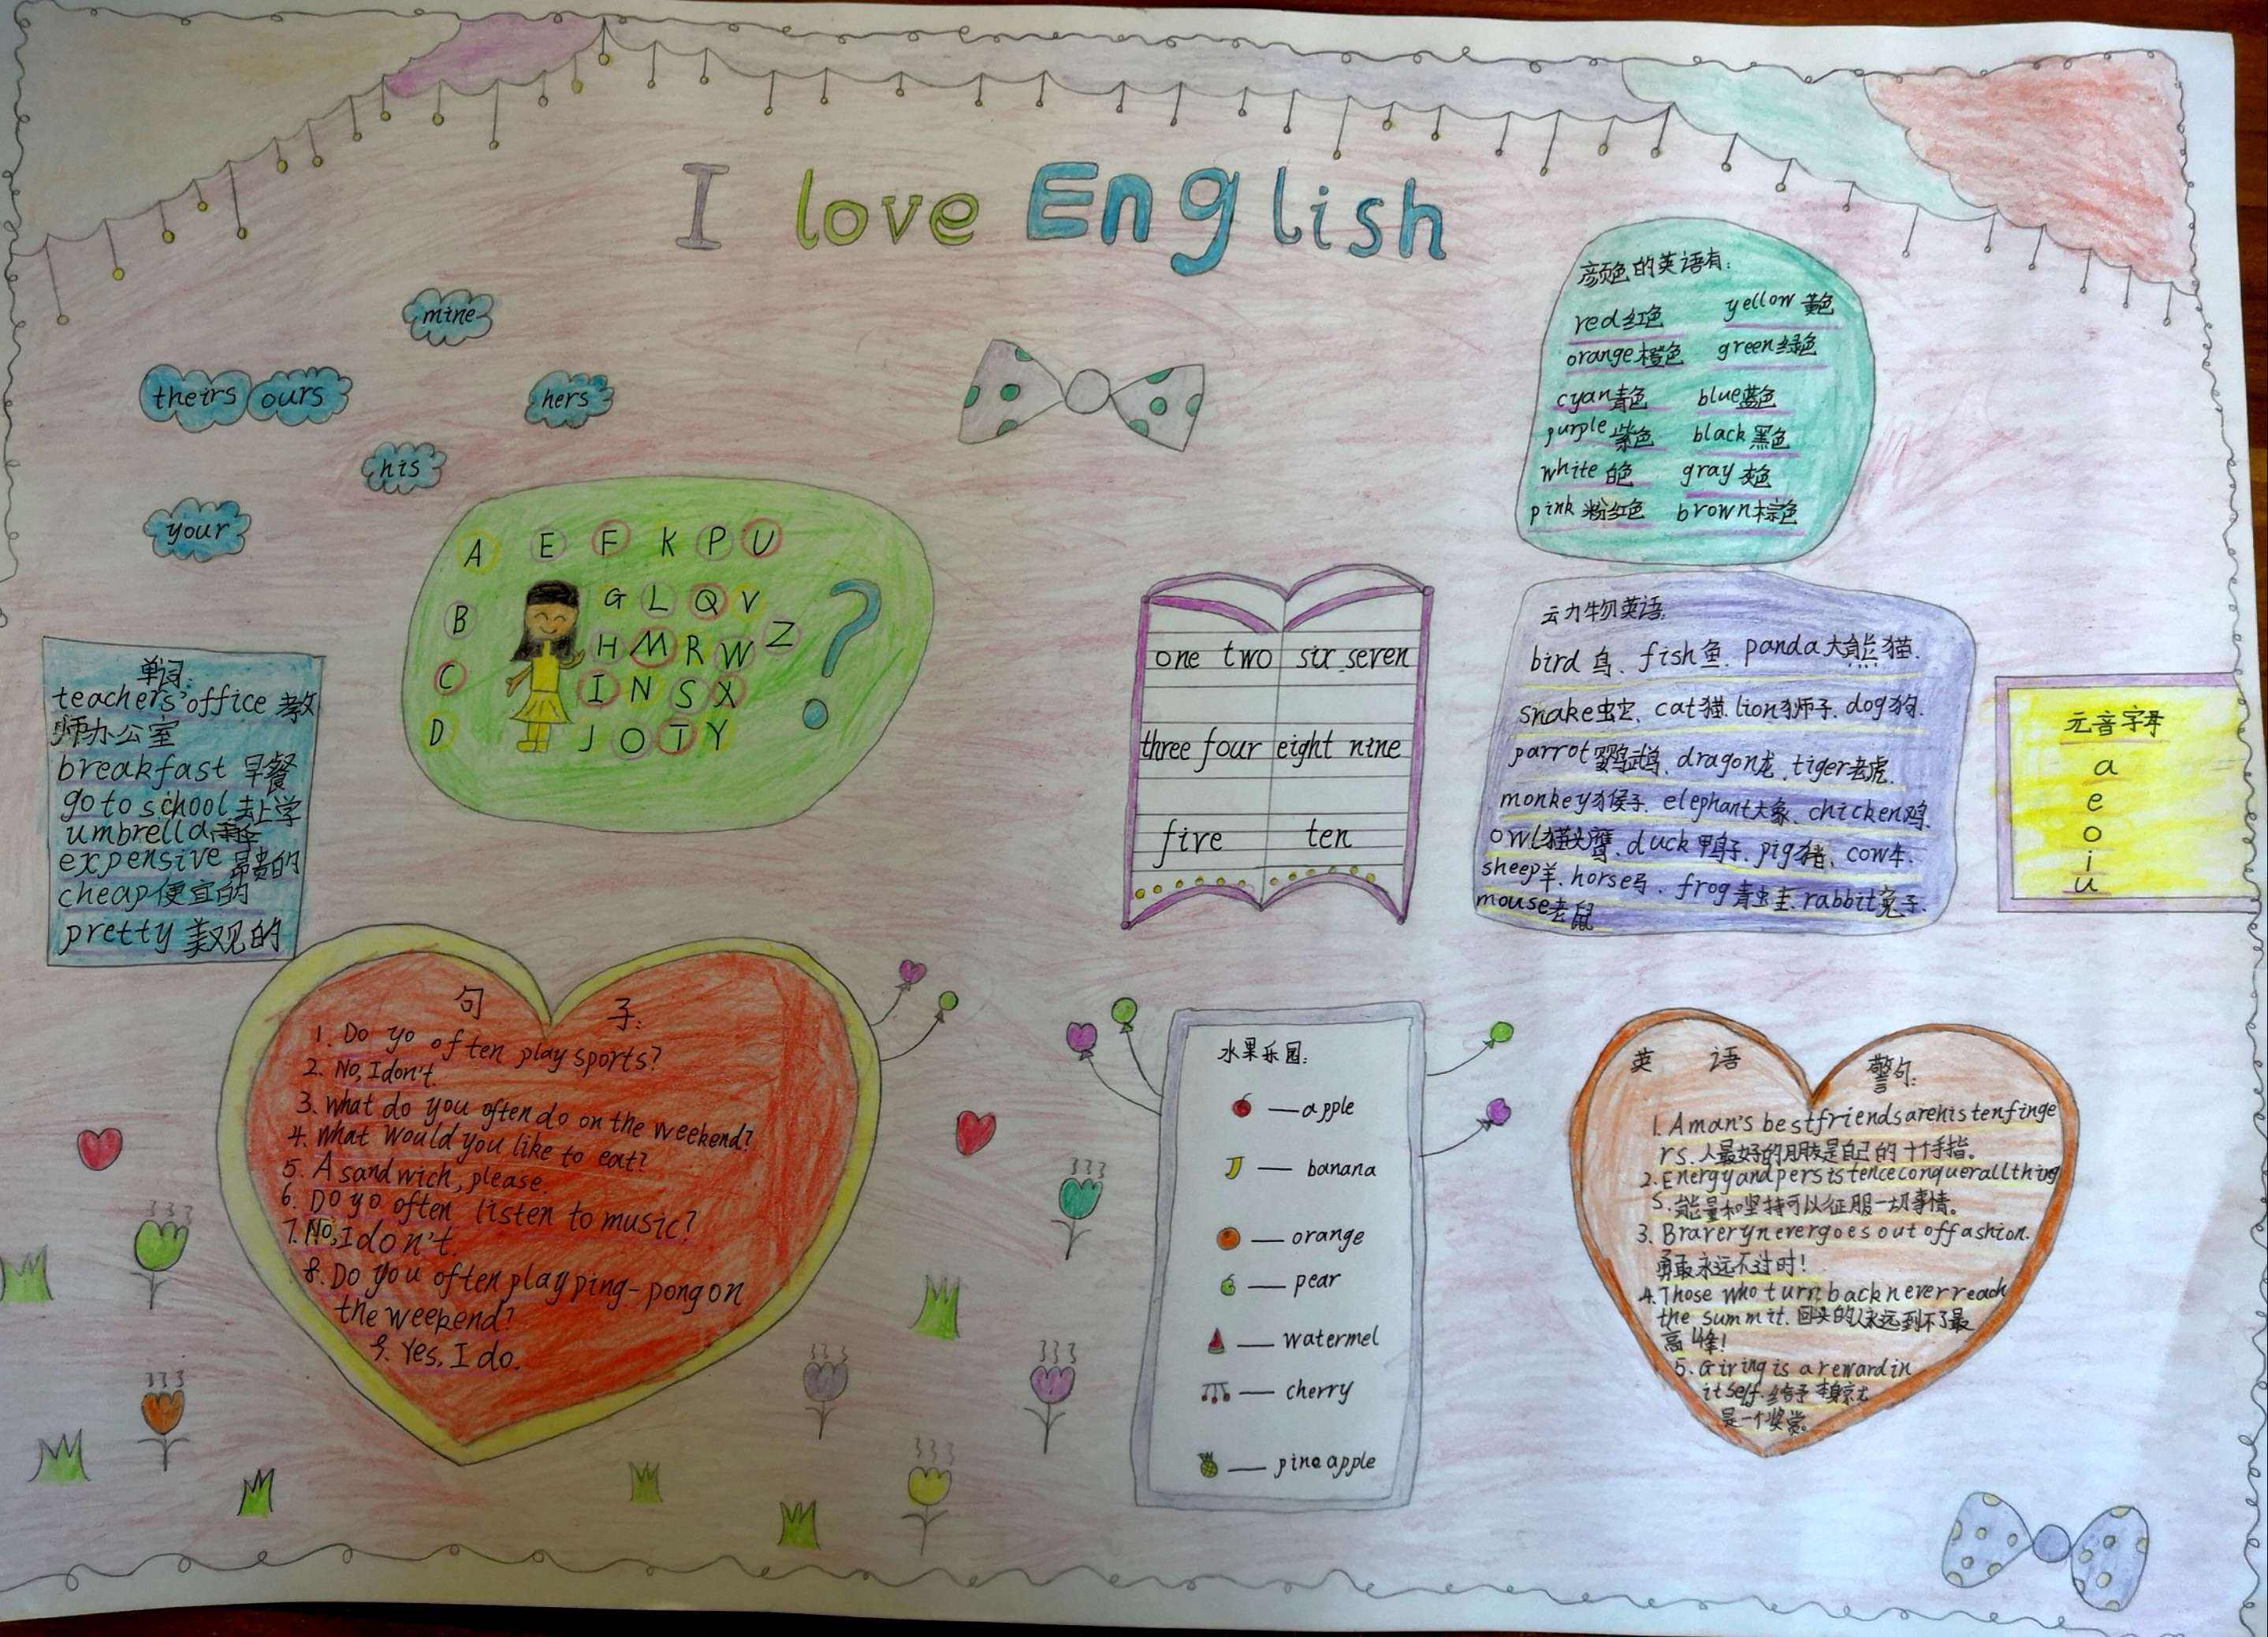 I love English
mine
theirs ours
hers
his
your
A E F K P U
B G L Q V
H M R W Z
C I N S X
D J O T Y
?
颜色的英语有:
red红色 yellow 黄色
orange橙色 green绿色
cyan青色 blue蓝色
purple 紫色 black 黑色
white 白色 gray 灰色
pink 粉红色 brown棕色
单词:
teachers'office 教
师办公室
breakfast 早餐
go to school 去上学
umbrella 雨伞
expensive 昂贵的
cheap便宜的
pretty 美观的
one two six seven
three four eight nine
five ten
动物英语:
bird 鸟、fish鱼、panda大熊猫、
snake蛇、cat猫、lion狮子、dog狗、
parrot鹦鹉、dragon龙、tiger老虎、
monkey猴子、elephant大象、chicken鸡、
owl猫头鹰、duck 鸭子、pig猪、cow牛、
sheep羊、horse马、frog青蛙、rabbit兔子、
mouse老鼠
元音字母
a
e
o
i
u
句子:
1. Do yo often play sports?
2. No, I don't.
3. What do you often do on the weekend?
4. What would you like to eat?
5. A sandwich, please.
6. Do yo often listen to music?
7. No, I don't.
8. Do you often play ping-pong on
the weekend?
9. Yes, I do.
水果乐园:
—apple
— banana
— orange
— pear
— watermel
— cherry
— pineapple
英语警句:
1. A man's best friends are his ten finge
rs. 人最好的朋友是自己的十个手指。
2. Energy and persistence conquer all thing
s. 能量和坚持可以征服一切事情。
3. Bravery never goes out of fashion.
勇敢永远不过时!
4. Those who turn back never reach
the summit. 回头的人永远到不了最
高峰!
5. Giving is a reward in
itself. 给予本身就
是一个奖赏。